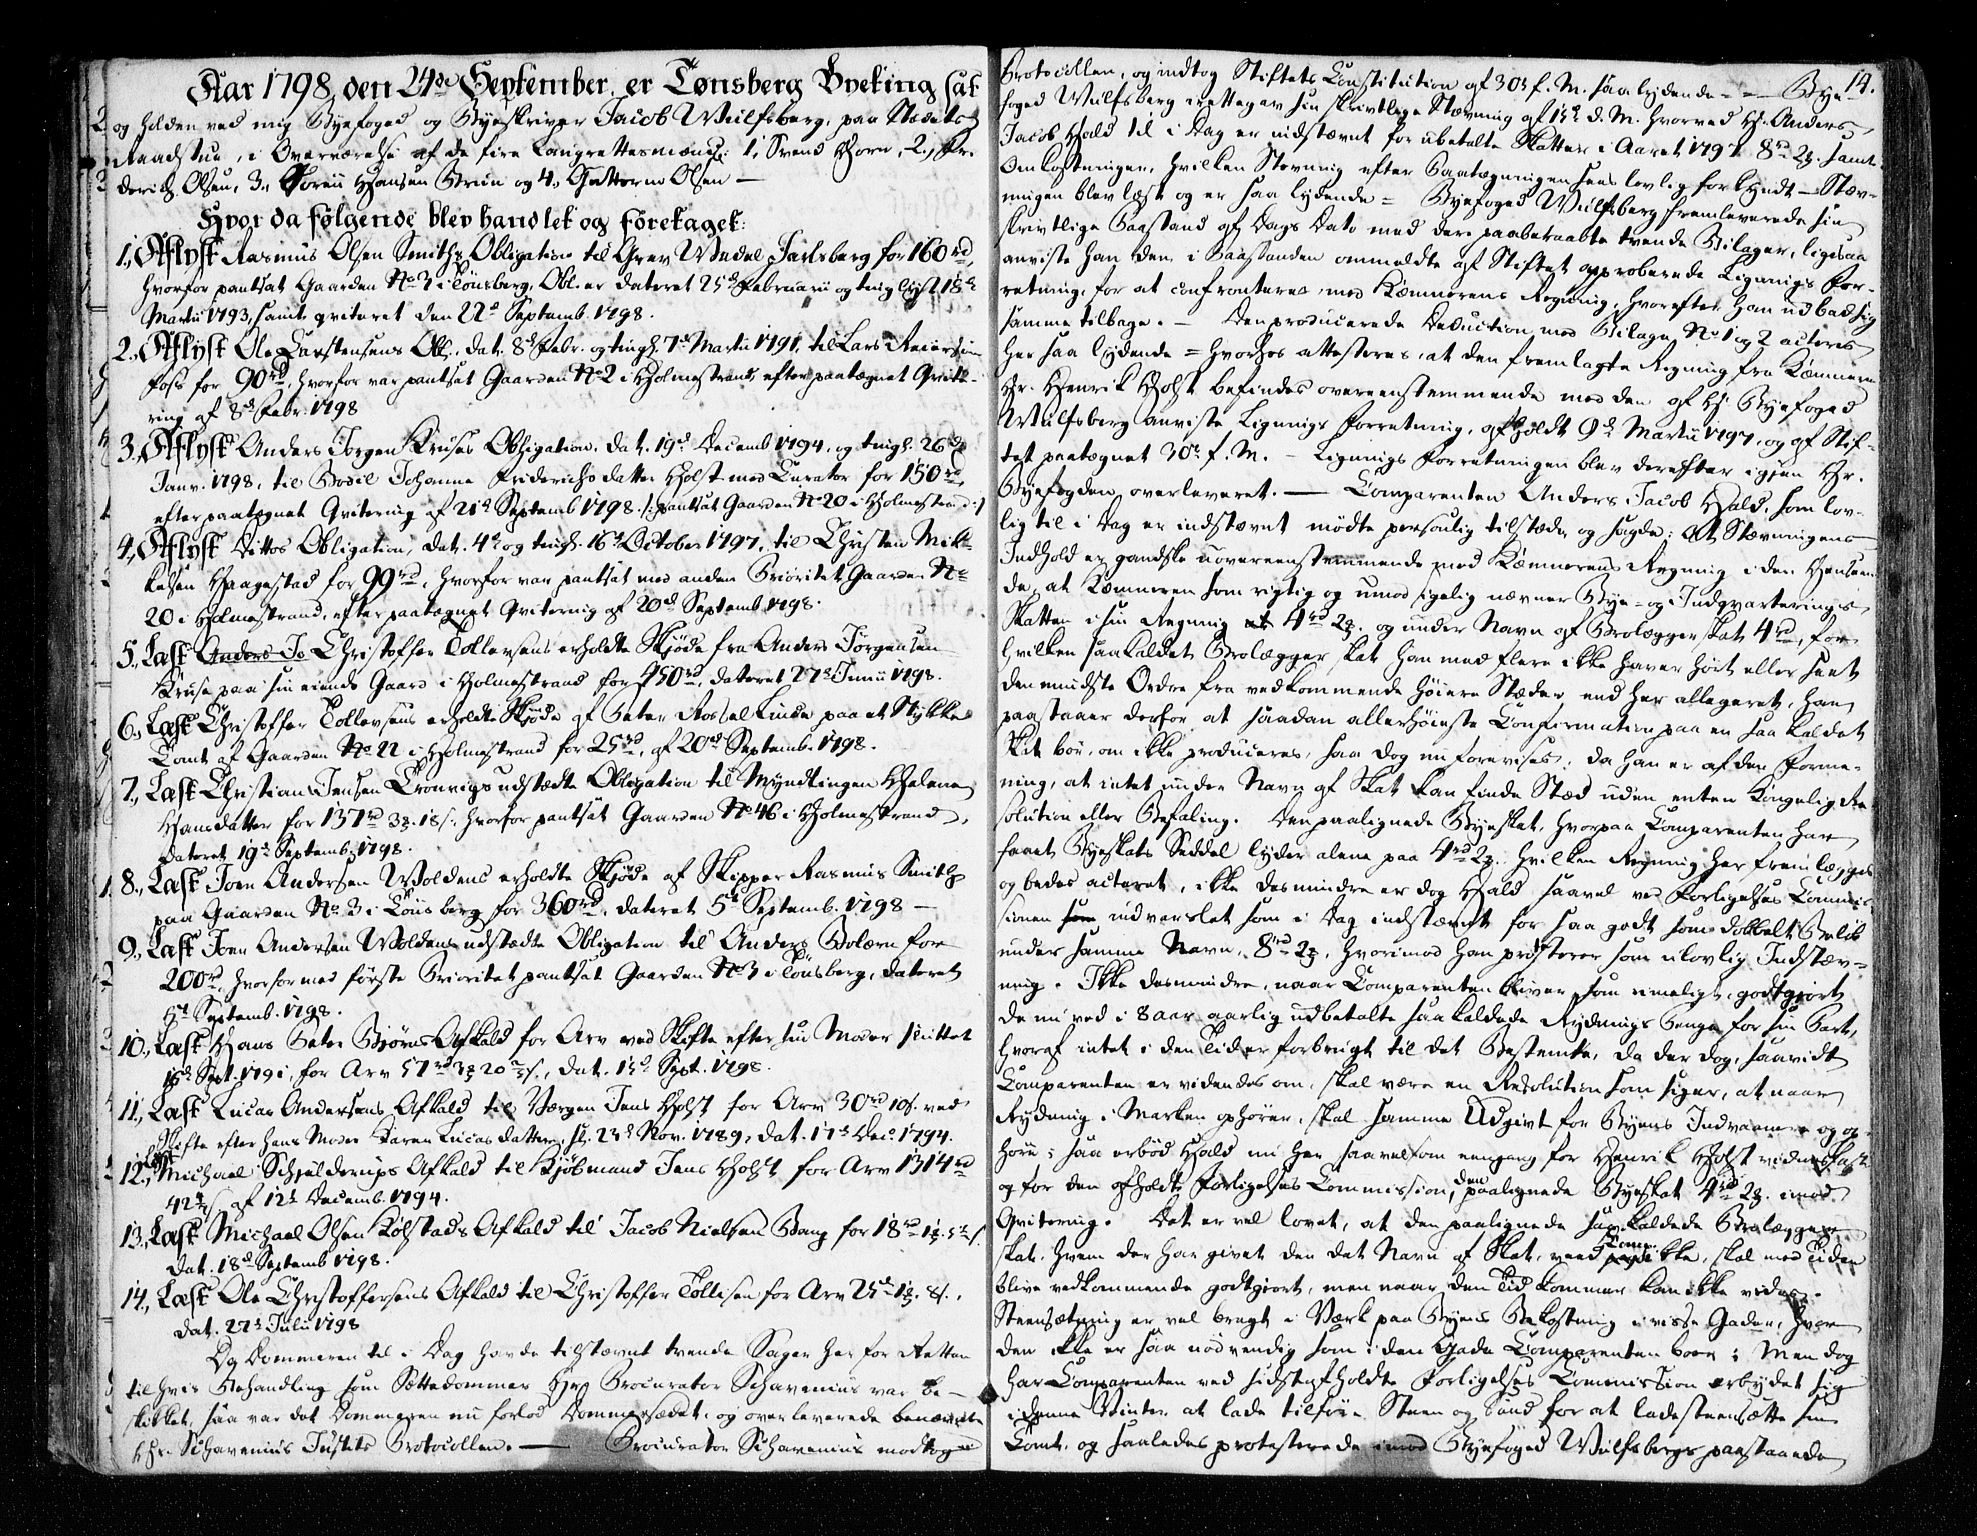 Aar 1798 den 24de September, er Tønsberg Byeting sat
og holden ved mig Byefoged og Byeskriver Jacob Wulfsberg, paa Stædets
Raadstue, i Overværelse af de fire Laugrettesmænd: 1, Svend Horn, 2, Fri-
derich Olsen, 3, Søren Hansen Bruun og 4, Guttorm Olsen —
Hvor da følgende blev handlet og foretaget:
1, Aflyst Rasmus Olsen Smiths Obligation til Grev Wedel Jarlsberg for 160 rd,
hvorfor pantsat Gaarden No 3 i Tönsberg, Obl. er dateret 25d Februarii og tinglyst 18d
Martii 1793, samt qviteret den 22d Septemb. 1798.
2, Aflyst Ole Carstensens Obl., dat. 8d Febr. og tingl. 7d Martii 1791, til Lars Reiersen
Foss for 90 rd, hvorfor var pantsat Gaarden No 2 i Holmestrand, efter paategnet Qvite-
ring af 8d Febr. 1798
3, Aflyst Anders Jörgen Kruses Obligation, dat. 19d Decemb 1794, og tingl. 26d
Janv. 1798, til Bodil Johanne Friderichsdatter Holst med Curator for 150 rd,
efter paategnet Qvitering af 21d Septemb 1798 /: pantsat Gaarden No 20 i Holmestrand :/
4, Aflyst Dittos Obligation, dat. 4d og tingl. 16d October 1797, til Christen Mik-
kelsen Haagestad for 99 rd, hvorfor var pantsat med anden Prioritet Gaarden No
20 i Holmestrand, efter paategnet Qvitering af 20d Septemb 1798.
5, Læst Anders Jo Christoffer Tollevsens erholdte Skjöde fra Anders Jörgensen
Kruse paa sin eiende Gaard i Holmestrand for 950 rd, dateret 27d Junii 1798.
6, Læst Christoffer Tollevsens erholdte Skjöde af Peter Rossel Linde paa et Stykke
Tomt af Gaarden No 22 i Holmestrand for 25 rd, af 20d Septemb. 1798.
7, Læst Christian Jensen Tronvigs udstædte Obligation til Myndlingen Helene
Hansdatter for 137 rd 3 . 18 s. hvorfor pantsat Gaarden No 46 i Holmestrand,
dateret 19d Septemb. 1798.
8, Læst Joen Andersen Woldens erholdte Skjöde af Skipper Rasmus Smith
paa Gaarden No 3 i Tönsberg for 360 rd, dateret 5d Septemb. 1798 —
9, Læst Joen Andersen Woldens udstædte Obligation til Anders Bolærn for
200 rd, hvorfor med förste Prioritet pantsat Gaarden No 3 i Tönsberg, dateret
Septemb. 1798.
10, Læst Hans Peter Björns Afkald for Arv ved Skifte efter sin Moder sluttet
Sept. 1791, for Arv 57 rd 3 20 s., dat. 15d Sept. 1798.
11, Læst Lucas Andersens Afkald til Værgen Jens Holst for Arv 30 rd 10 s. ved
Skifte efter hans Moder Karen Lucasdatter, sl. 23d Nov. 1789, dat. 17d Dec. 1794.
12, Læst Michael Schjelderups Afkald til Kjöbmand Jens Holst for Arv 1314 rd
42 s af 12d Decemb. 1794.
13, Læst Michael Olsen Kolstads Afkald til Jacob Nielsen Bang for 18 rd
dat. 18d Septemb 1798.
14, Læst Ole Christoffersens Afkald til Christoffer Tollisen for Arv 25 rd 1 . 8 s.,
dat. 27d Julii 1798
Da Dommeren til i Dag havde tilstævnt trende Sager her for Retten
til hvis Behandling som Sættedommer Hr Procurator Schavenius var be-
skikket, saa var det Dommeren nu forlod Dommersædet, og overleverede benævnte
Hr. Schavenius Justits Protocollen. — Procurator Schavenius modtog
14.
Protocollen, og indtog Stiftets Constitution af 30d f. M. saa lydende — = — Bye-
foged Wulfsberg irettegav sin skrivtlige Stævning af 15d d. M. hvorved Hr. Anders
Jacob Hald til i Dag er indstævnt for ubetalte Skatter i Aaret 1797 8 rd 2 . samt
Omkostninger, hvilken Stevning efter Paategningen sees lovlig forkyndt — Stæv-
ningen blev læst og er saa lydende = Byefoged Wulfsberg fremleverede sin
skrivtlige Paastand af Dags Dato med de paaberaabte trende Bilager, ligesaa
anviste han den i Paastanden ommeldte af Stiftet approberede Lignings For-
retning, for at confronteres med Kæmnerens Regning, hvorefter han udbad sig
samme tilbage. — Den producerede Deduction med Bilage No 1 og 2 acteres
her saa lydende = hvorhos attesteres, at den fremlagte Regning fra Kæmneren
Hr. Henrik Holst befindes overeenstemmende med den af Hr Byefoged
Wulfsberg anviste Lignings Forretning, afholdt 9d Martii 1797, og af Stif-
tet paategnet 30d f. M. — Lignings Forretningen blev derefter igjen Hr.
Byefogden overleveret. — Comparenten Anders Jacob Hald, som lov-
lig til i Dag er indstævnt mödte personlig tilstæde og sagde: At Stævningens
Indhold er gandske uovereenstemmende med Kæmnerens Regning i den Henseen-
de, at Kæmneren som rigtig og umodsigelig nævner Bye- og Indqvarterings
Skatten i sin Regning at 4 rd 2 . og under Navn af Brolæggerskat 4 rd, for
hvilken saakaldet Brolæggerskat han med flere ikke haver hört eller seet
den mindste Ordre fra vedkommende höiere Stæder, end her allegeret, han
paastaaer derfor at saadan allerhöieste Confirmation paa en saa kaldet
Skat bör, om ikke produceres, saa dog nu forevises, da han er af den Forme-
ning, at intet under Navn af Skat kan finde Stæd uden enten Kongelig Re-
solution eller Befaling. Den paalignede Byeskat, hvorpaa Comparenten har
faaet Byeskats Seddel lyder alene paa 4 rd 2 . hvilken Regning her fremlægges
og bedes acteret, ikke desmindre er dog Hald saavel ved Forligelses Commis-
sionen som indvarslet som i Dag indstævnt for saa godt som dobbelt Belöb
under samme Navn, 8 rd 2 , hvorimod han protesterer som ulovlig Indstæv-
ning. Ikke desmindre, naar Comparenten bliver, som rimeligt, godtgiort
de nu ved i 8 aar aarlig udbetalte saa kaldede Rydnings Penge for sin Part,
hvoraf intet i den Tid er forbrugt til det Bestemte, da der dog, saavidt
Comparenten er vidende om, skal være en Resolution som siger, at naar
Rydning i Marken ophörer, skal samme Udgivt for Byens Indvaanere og op-
höre; saa erböd Hald nu her saavelsom eengang for Henrik Holst vidnefast
og for den afholdte Forligelses Commission, den paalignede Byeskat 4 rd 2 . imod
Qvitering. Det er vel lovet, at den paalignede saa kaldede Brolægger
skat, hvem der har givet den det Navn af Skat, veed Comp. ikke, skal med Tiden
blive vedkommende godtgiort, men naar den Tid kommer kan ikke vides.
Steensætning er vel bragt i Værk paa Byens Bekostning i visse Gader, hvor
den ikke er saa nödvendig som i den Gade Comparenten boer; Men dog
har Comparenten ved sidstafholdte Forligelses Commission erbydet sig
i denne Vinter at lade tilföre Steen og Sand for at lade steensætte sin
Tomt, og saaledes protesterede imod Byefoged Wulfsbergs paastaaende